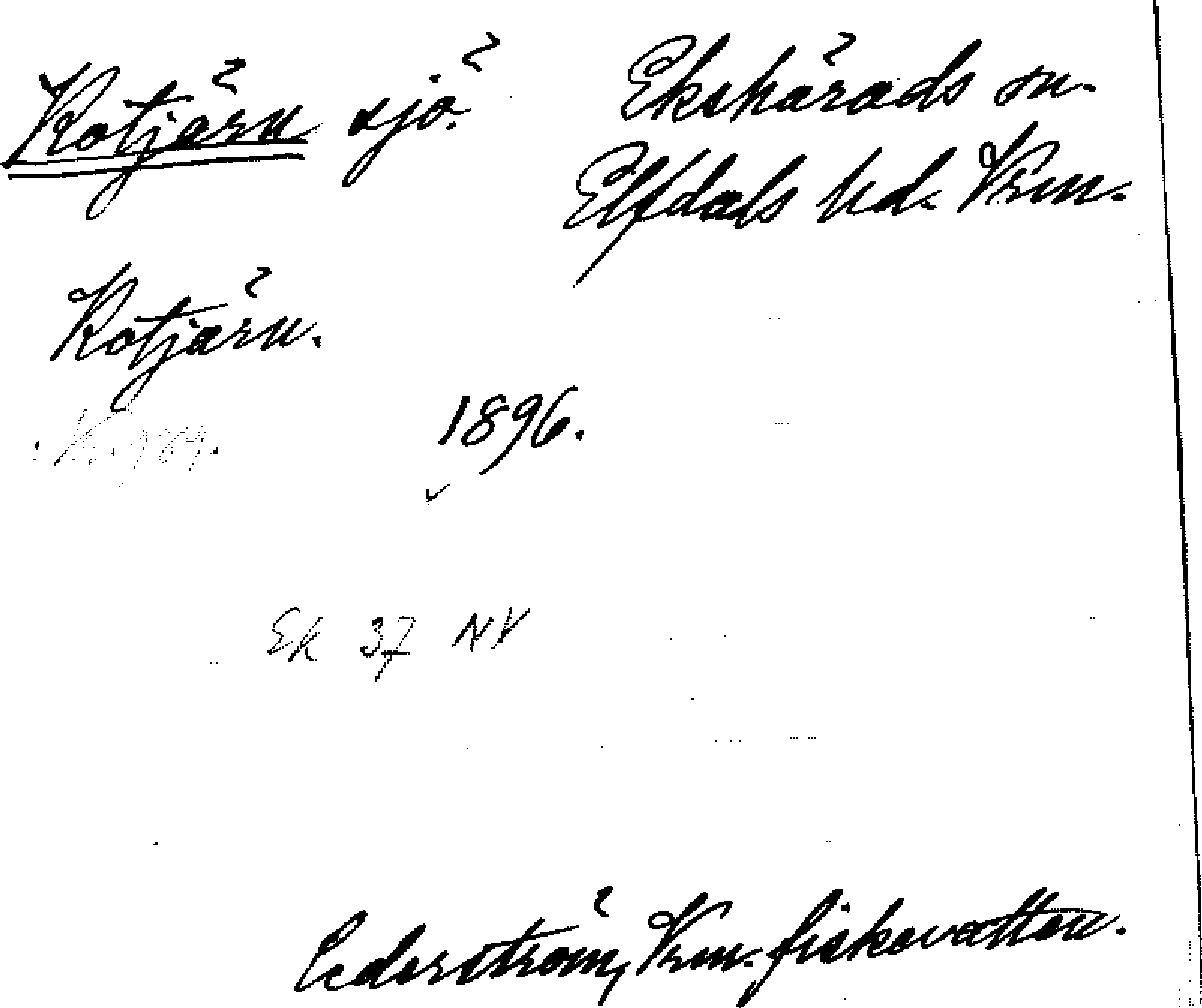 Kotjärn sjö. Ekshärads sn.
Elfdals hd. Vrm.
Kotjärn.
1896.
Ek 37 NV
Cederström, Vrm. fiskevatten.